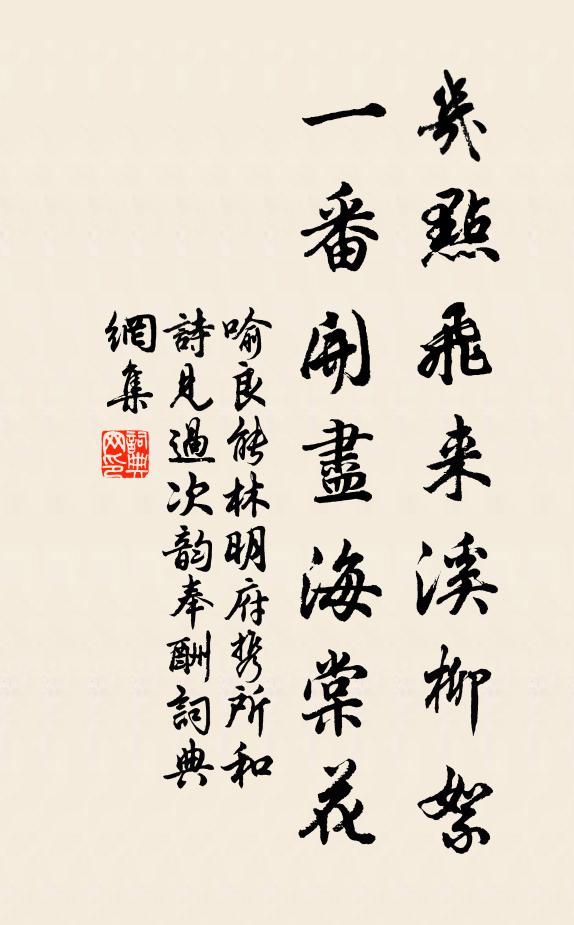 幾點飛来溪柳絮
一番開盡海棠花
喻良能林明府携所和
詩見過次韵奉酬詞典
網集
詞典
网印